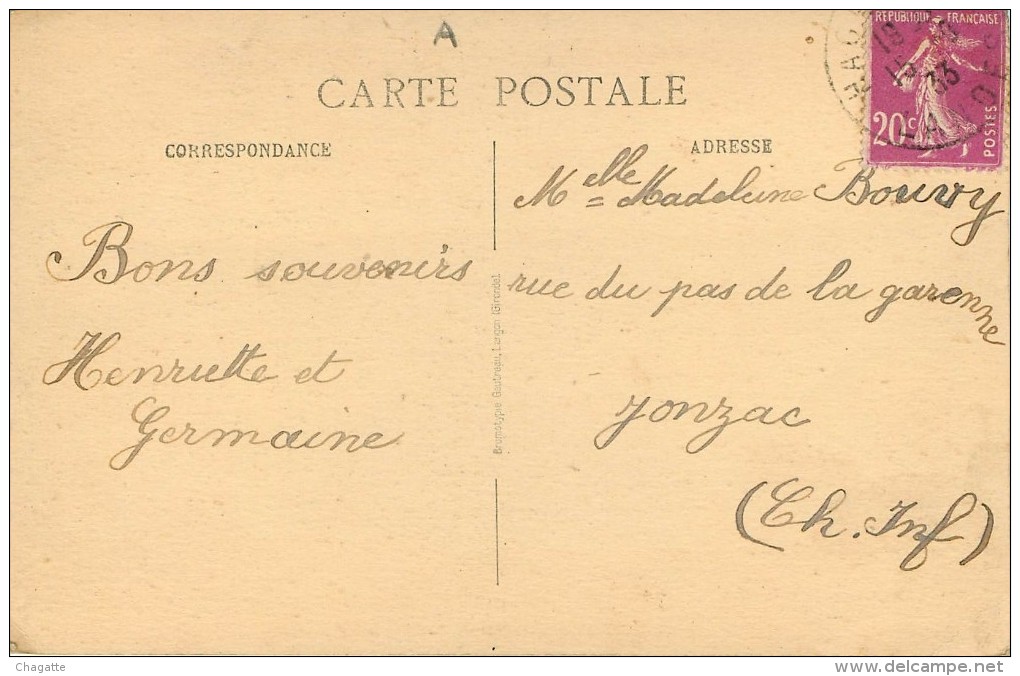 A
CARTE POSTALE
CORRESPONDANCE
ADRESSE
REPUBLIQUE FRANÇAISE
20c
POSTES
33
LANDES
Bons souvenirs
Henriette et
Germaine
Bromotypie Gautreau, Langon (Gironde).
Melle Madeleine Bouvy
rue du pas de la garenne
Jonzac
(Ch. Inf)
Chagatte
www.delcampe.net